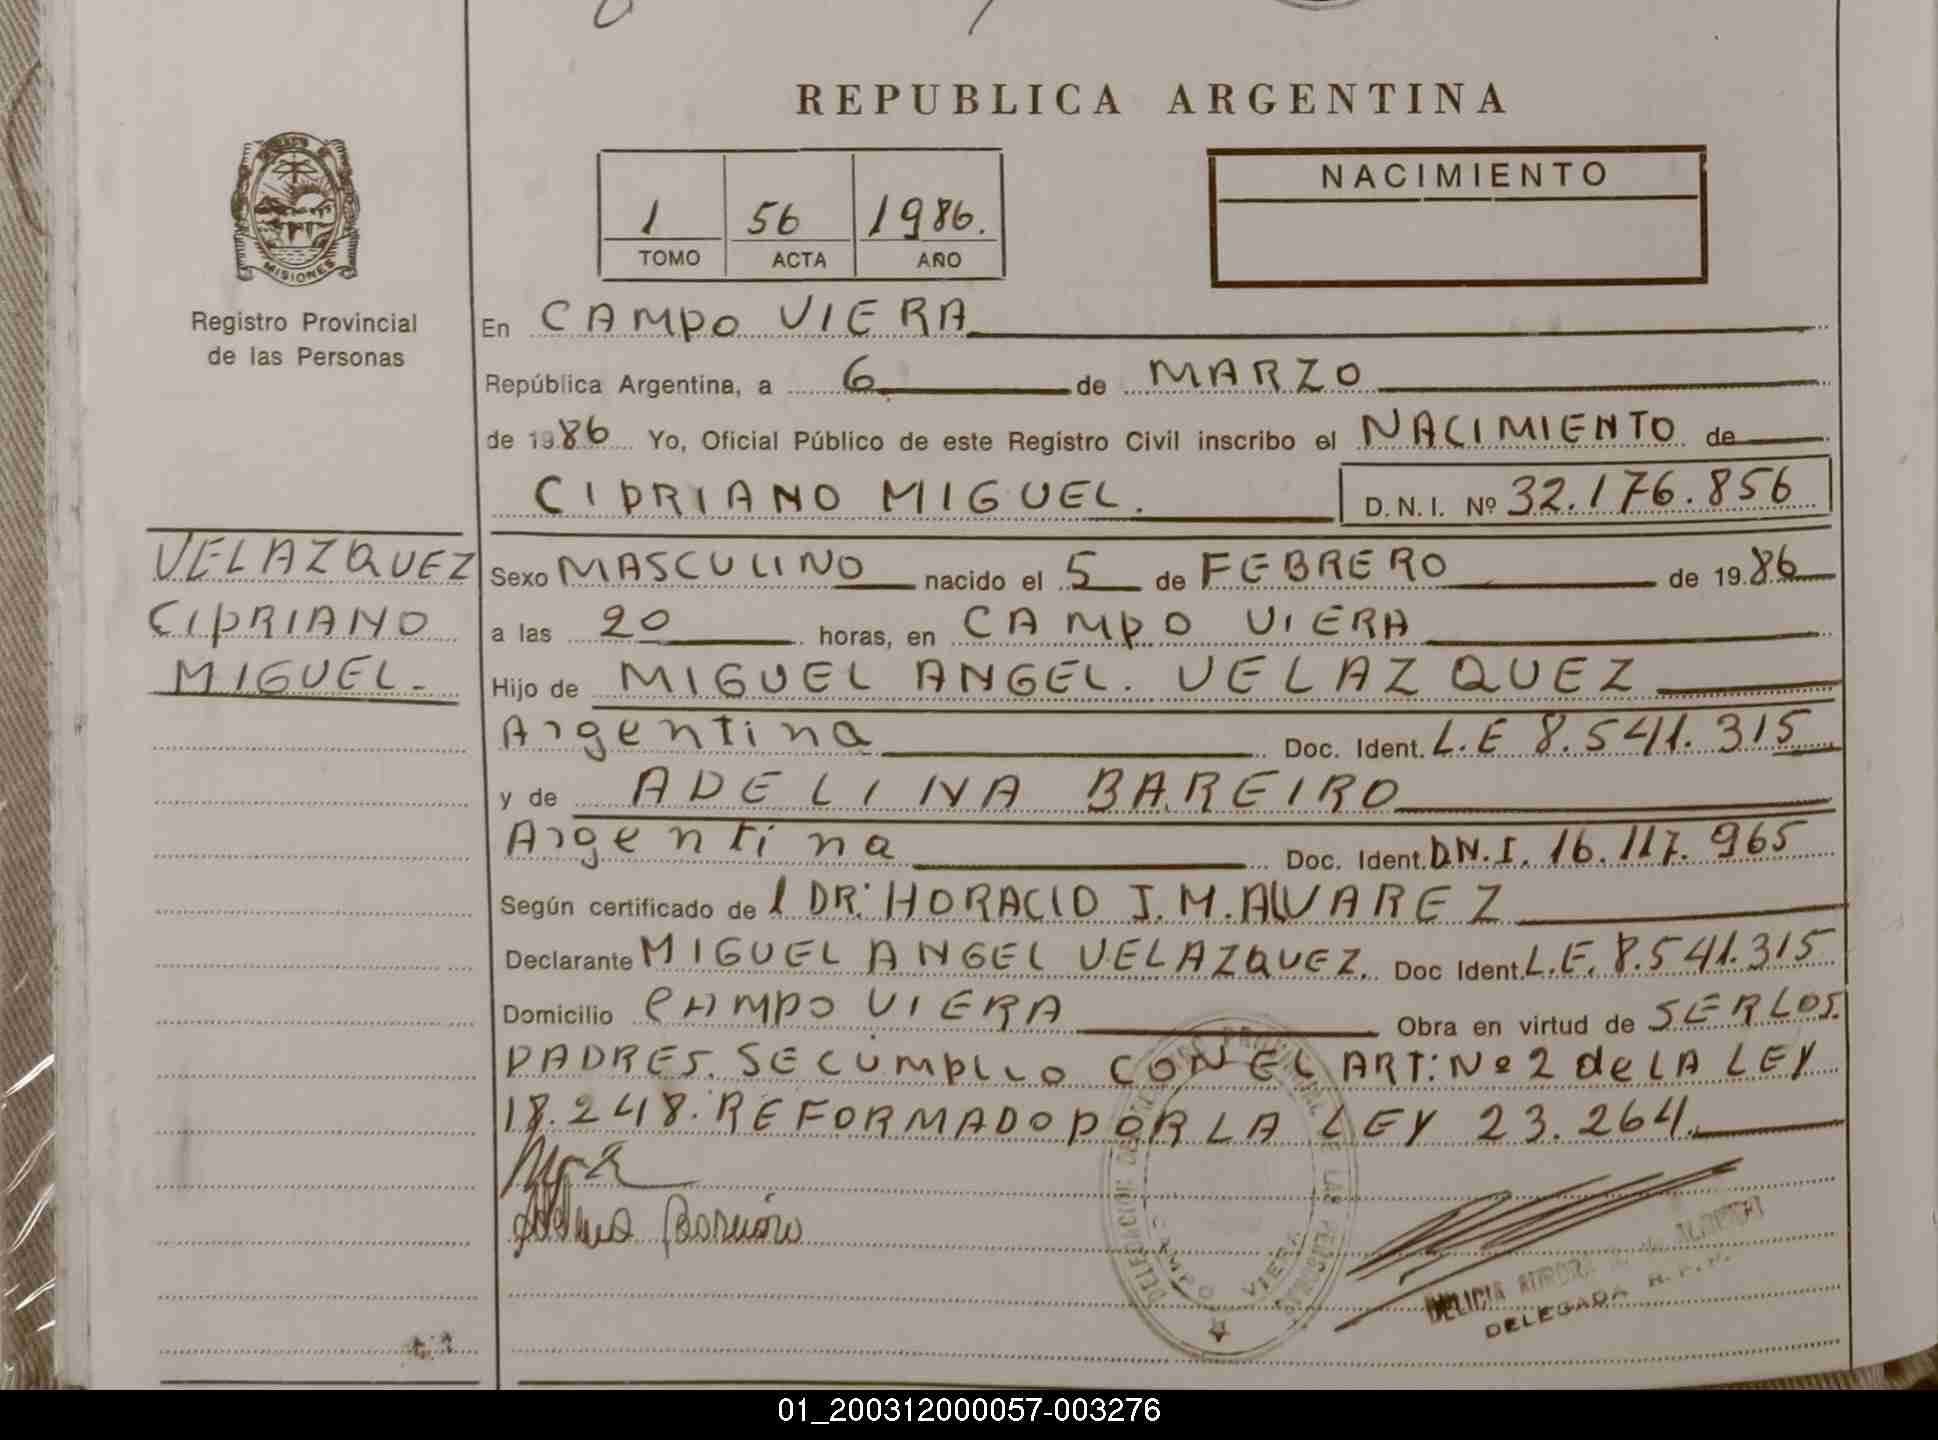 REPUBLICA ARGENTINA
MISIONES
Registro Provincial
de las Personas
1 56 1986.
TOMO ACTA AÑO
NACIMIENTO
En CAMPO VIERA
República Argentina, a 6 de MARZO
de 1986 Yo, Oficial Público de este Registro Civil inscribo el NACIMIENTO de
CIPRIANO MIGUEL. D.N.I. Nº 32.176.856
VELAZQUEZ
CIPRIANO
MIGUEL.-
Sexo MASCULINO nacido el 5 de FEBRERO de 1986
a las 20 horas, en CAMPO VIERA
Hijo de MIGUEL ANGEL. VELAZQUEZ
Argentina Doc. Ident. L.E 8.541.315
y de ADELINA BAREIRO
Argentina Doc. Ident. D.N.I. 16.117.965
Según certificado de l DR: HORACIO J.M. ALVAREZ
Declarante MIGUEL ANGEL VELAZQUEZ. Doc Ident. L.E. 8.541.315
Domicilio CAMPO VIERA Obra en virtud de SER LOS.
PADRES. SE CUMPLIO CON EL ART: Nº 2 de LA LEY
18.248. REFORMADO POR LA LEY 23.264.
Bareiro
CAMPO VIERA
DELICIA AURORA
DELEGADA R.P.P.
01_200312000057-003276